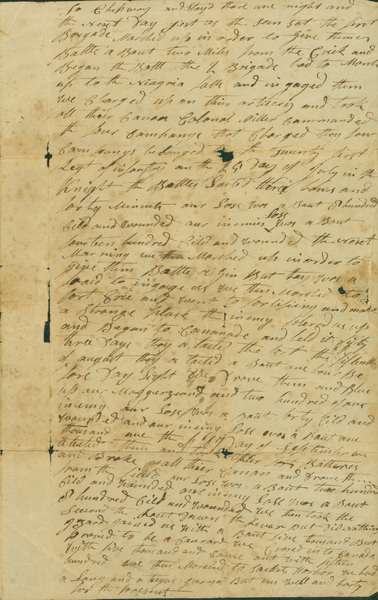 to Chipway and stayd thare one night and
the Next Day just as the Sun Sat the first
Brigade Marched up in order to give them
Battle a Baut two Miles from the Crick and
Began the Battle the 2 Brigade had to March
up to the Niagria falls and ingaged them
we Charged up on thir artilery and took
all thir Canon Colonel Miller Commanded
the four Companys that Charged thos four
Companys belonged to the twenty first
Regt of infantry on the 25 Day of July in the
Knight the Battle Lasted three hours and
forty Minuts our Loss was a Baut 8 hundred
Cild and wounded our inemis Loss was a Baut
fourteen hundred Cild and wounded the next
Morning we Marched up in order to
give them Battle a Gin But they was a
fraid to ingage us we then Marched to
fort Erie and went to fortifying and make
a Strange place the inemy folered us up
and Began to Cannanade and held it fifty
three Days they a tacted the fort the 15
of august they a tacted a Baut one our Be
fore Day Light we Drove them and Blue
up our Maggerzean and two hundred of our
inemy our Loss was a Baut forty Cild and
wounded and our inemy Loss was a Baut one
thousand one the 17 Day of September we
a tacted them and took thir Batterres
and Broke all thir Canon and Drove them
from the field our Loss was a Baut two hundred
Cild and wounded our inemy Loss was a Baut
8 hundred Cild and wounded we then
Second the
gard
a Baut five thousand But
proved to be a Canada
with five thousand and fifteen
hundred we then Marched to Sackets harbor we had
a long and a tegus
for the present